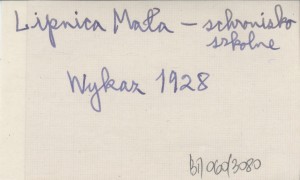 Lipnica Mała – schronisko
szkolne
Wykaz 1928
BJ/060/3080